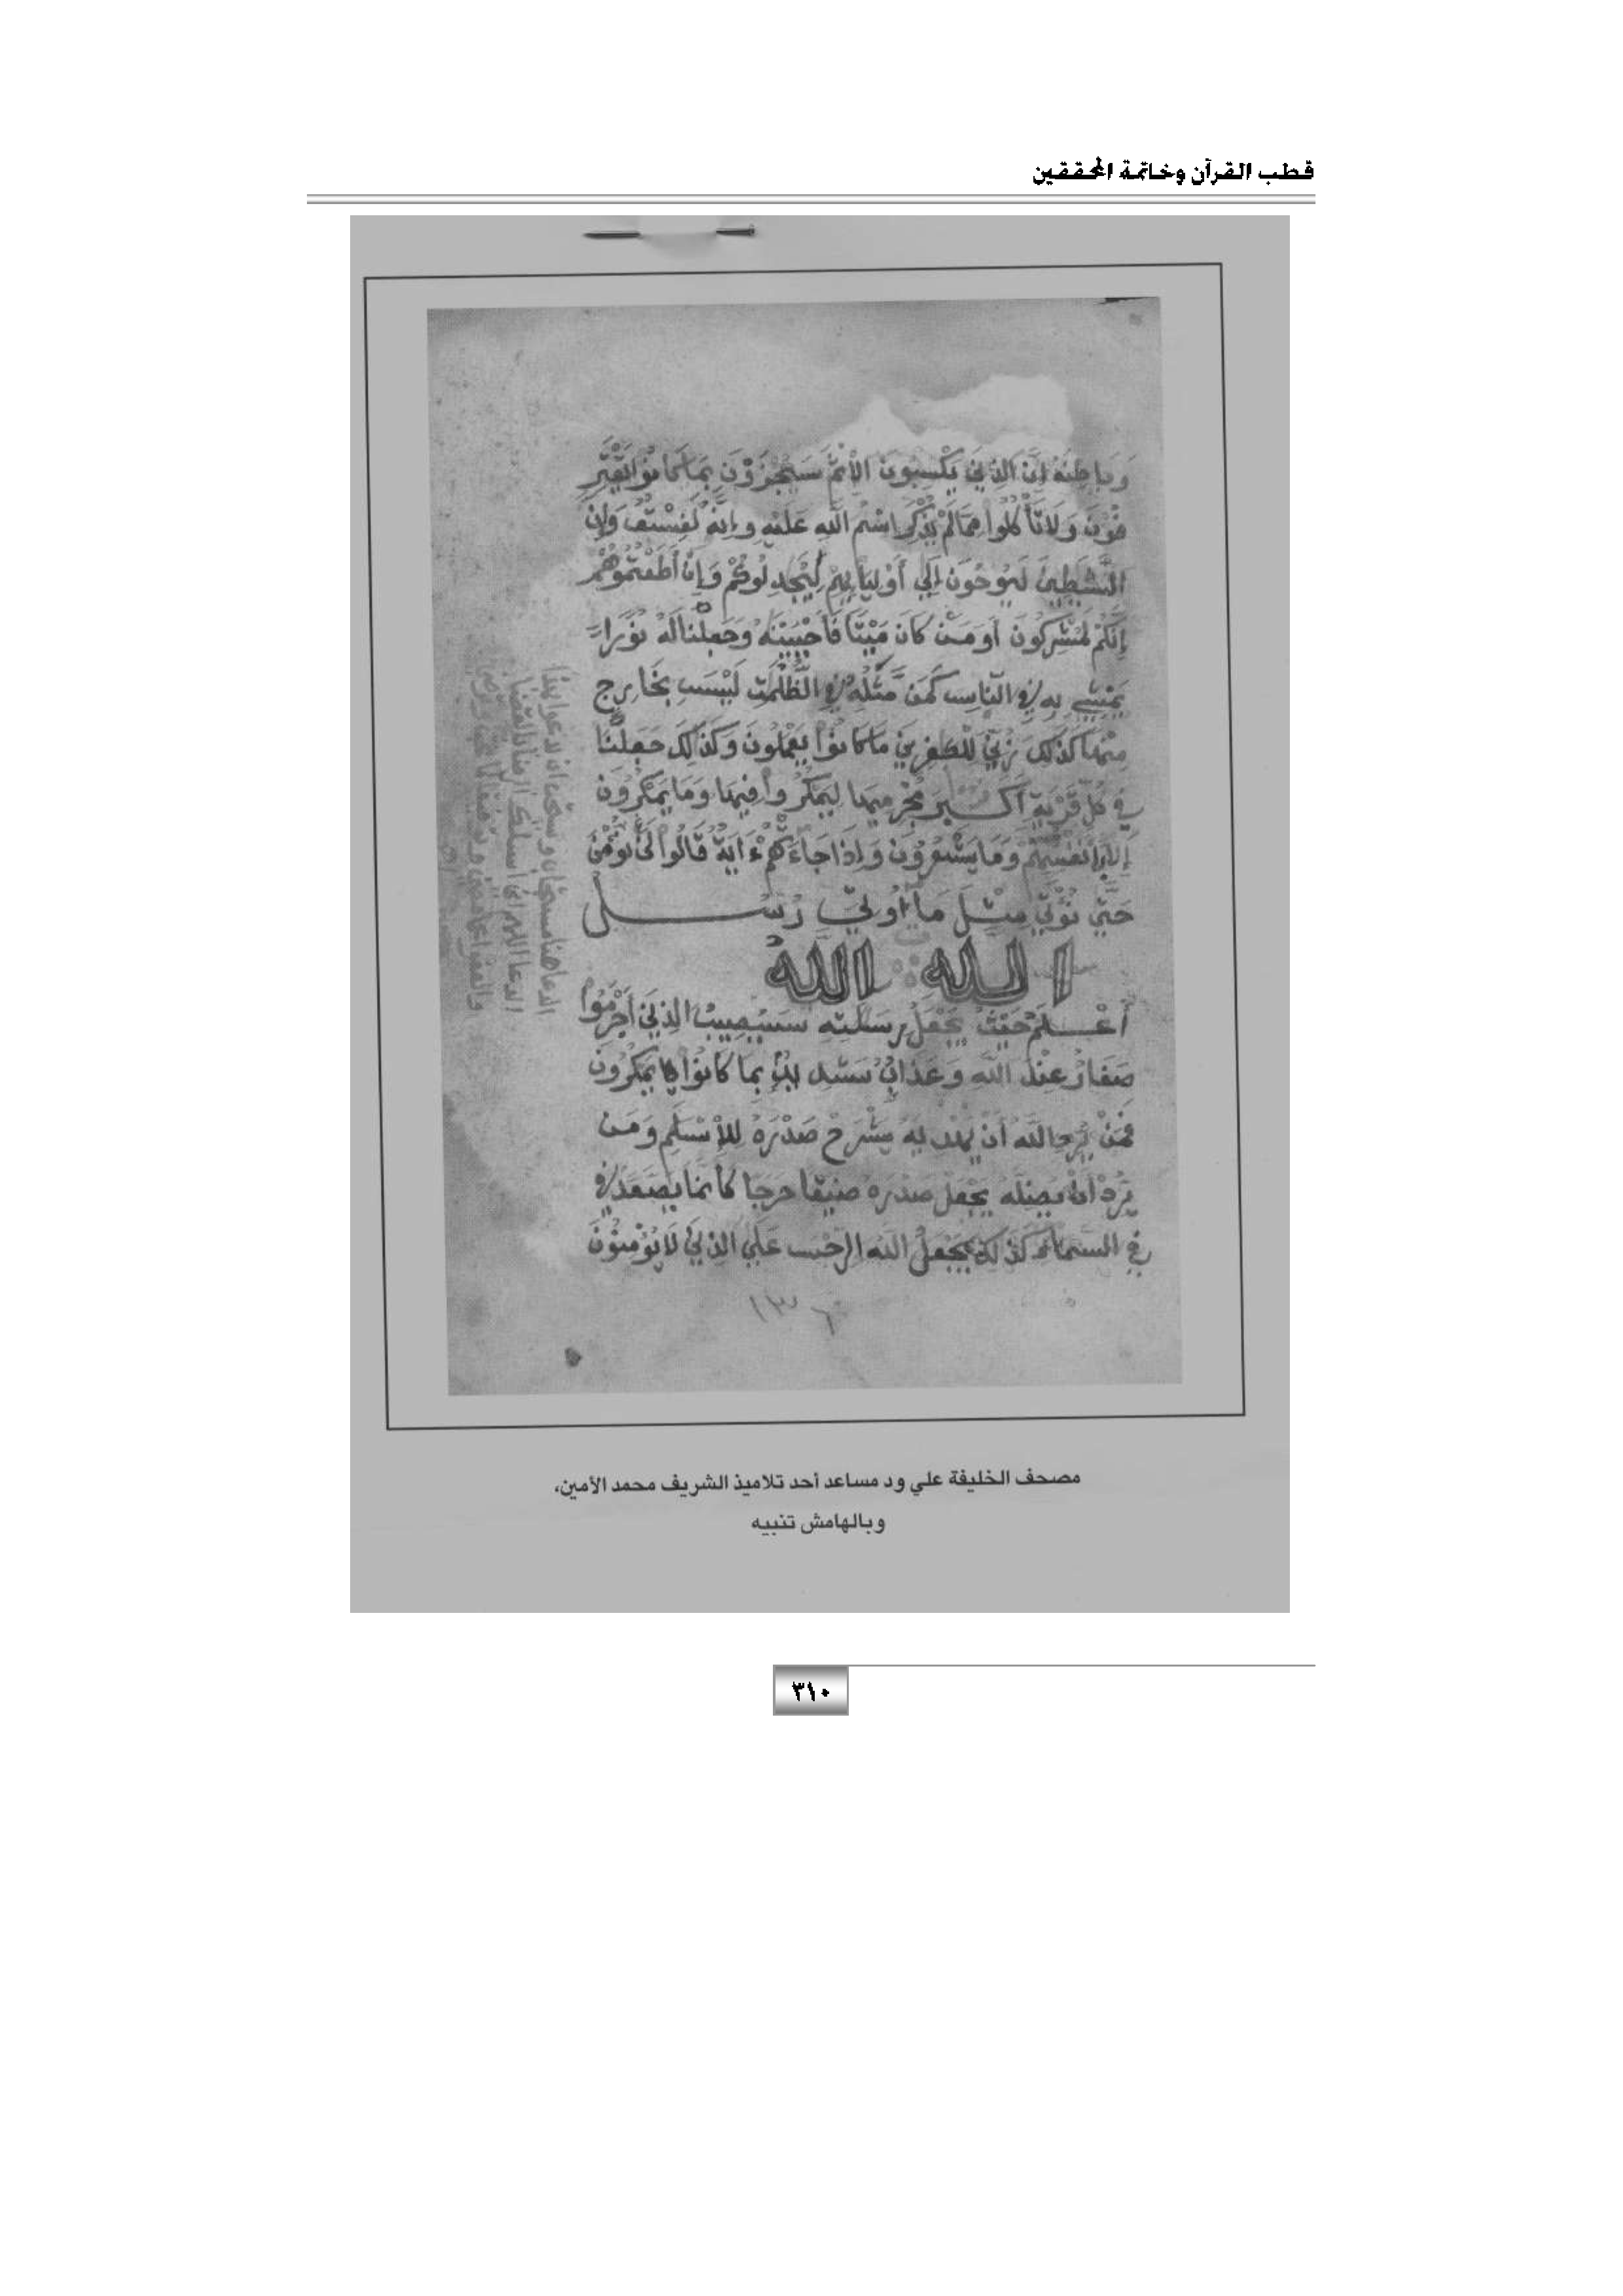 قطب القرآن وخاتمة المحققين
وباطنه إن الذين يكسبون الإثم سيجزون بما كانوا يقتر
فون ولا تأكلوا مما لم يذكر اسم الله عليه وإنه لفسق وإن
الشيطين ليوحون إلى أوليايهم ليجدلوكم وإن أطعتموهم
إنكم لمشركون أومن كان ميتا فأحيينه وجعلنا له نورا
يمشي به في الناس كمن مثله في الظلمت ليس بخارج
منها كذلك زين للكفرين ما كانوا يعملون وكذلك جعلنا
في كل قرية أكبر مجرميها ليمكروا فيها وما يمكرون
إلا بأنفسهم وما يشعرون وإذا جاءتهم ءاية قالوا لن نؤمن
حتى نؤتى مثل ما أوتي رسل
الله الله
أعلم حيث يجعل رسلته سيصيب الذين أجرموا
صغار عند الله وعذاب شديد بما كانوا يمكرون
فمن يرد الله أن يهديه يشرح صدره للإسلم ومن
يرد أن يضله يجعل صدره ضيقا حرجا كأنما يصعد في
في السماء كذلك يجعل الله الرجس على الذين لا يؤمنون
١٣٦
مصحف الخليفة علي ود مساعد أحد تلاميذ الشريف محمد الأمين،
وبالهامش تنبيه
٣١٠